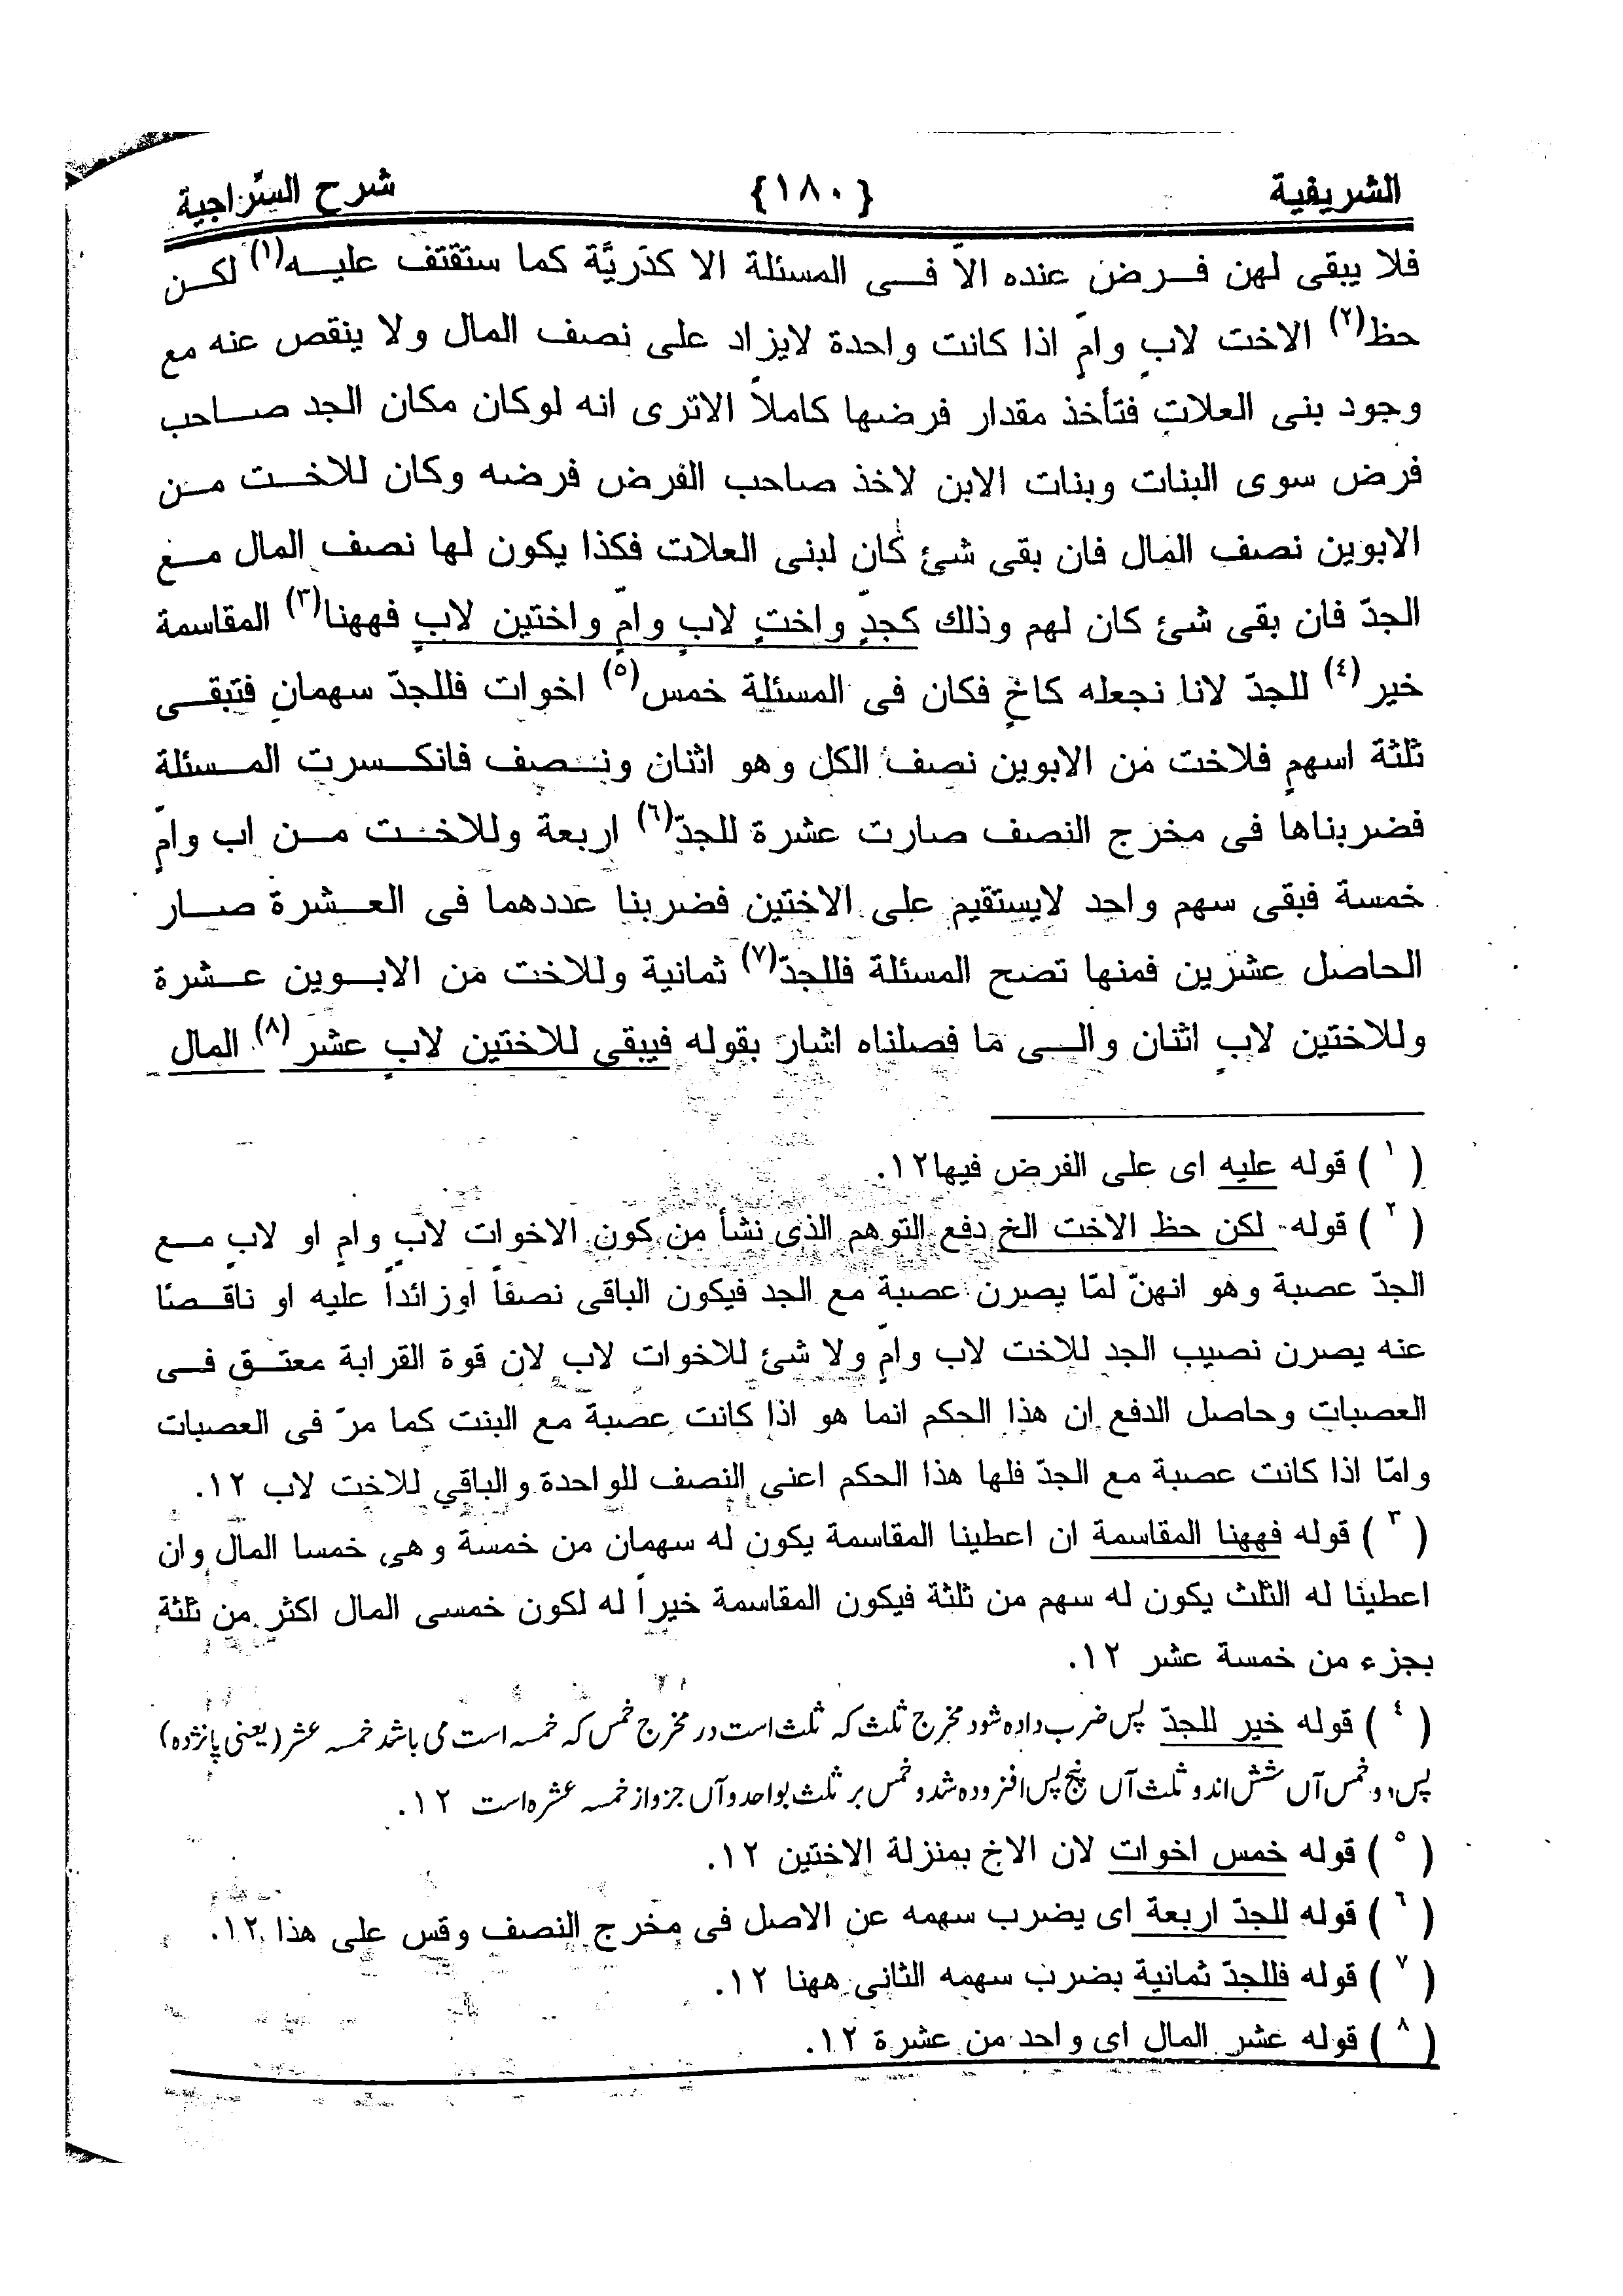 الشريفية {١٨٠} شرح السّراجية
فلا يبقى لهن فرض عنده الاّ فى المسئلة الا كدَريَّة كما ستقتف عليه(١) لكن
حظ(٢) الاخت لابٍ وامّ اذا كانت واحدة لايزاد على نصف المال ولا ينقص عنه مع
وجود بنى العلات فتأخذ مقدار فرضها كاملاً الاترى انه لوكان مكان الجد صاحب
فرض سوى البنات وبنات الابن لاخذ صاحب الفرض فرضه وكان للاخت من
الابوين نصف المال فان بقى شئ كان لبنى العلات فكذا يكون لها نصف المال مع
الجدّ فان بقى شئ كان لهم وذلك كجدٍ واختٍ لابٍ وامّ واختين لابٍ فههنا(٣) المقاسمة
خير(٤) للجدّ لانا نجعله كاخٍ فكان فى المسئلة خمس(٥) اخوات فللجدّ سهمان فتبقى
ثلثة اسهم فلاخت من الابوين نصف الكل وهو اثنان ونصف فانكسرت المسئلة
فضربناها فى مخرج النصف صارت عشرة للجدّ(٦) اربعة وللاخت من اب وامّ
خمسة فبقى سهم واحد لايستقيم على الاختين فضربنا عددهما فى العشرة صار
الحاصل عشرين فمنها تصح المسئلة فللجدّ(٧) ثمانية وللاخت من الابوين عشرة
وللاختين لابٍ اثنان والى ما فصلناه اشار بقوله فيبقى للاختين لابٍ عشر(٨) المال
(١) قوله عليه اى على الفرض فيها١٢.
(٢) قوله لكن حظ الاخت الخ دفع التوهم الذى نشأ من كون الاخوات لابٍ وامٍ او لابٍ مع
الجدّ عصبة وهو انهنّ لمّا يصرن عصبة مع الجد فيكون الباقى نصفاً اوزائداً عليه او ناقصًا
عنه يصرن نصيب الجد للاخت لاب وامّ ولا شئ للاخوات لاب لان قوة القرابة معتق فى
العصبات وحاصل الدفع ان هذا الحكم انما هو اذا كانت عصبة مع البنت كما مرّ فى العصبات
وامّا اذا كانت عصبة مع الجدّ فلها هذا الحكم اعنى النصف للواحدة والباقي للاخت لاب ١٢.
(٣) قوله فههنا المقاسمة ان اعطينا المقاسمة يكون له سهمان من خمسة وهى خمسا المال وان
اعطينا له الثلث يكون له سهم من ثلثة فيكون المقاسمة خيراً له لكون خمسى المال اكثر من ثلثة
بجزء من خمسة عشر ١٢.
(٤) قوله خير للجدّ پس ضرب داده شود مخرج ثلث که ثلث است در مخرج خمس که خمسه است می باشد خمسه عشر (یعنی پانزده)
پس دو خمس آں شش اند و ثلث آں پنج پس افزوده شد و خمس بر ثلث بواحد وآں جزو از خمسه عشره است ١٢.
(٥) قوله خمس اخوات لان الاخ بمنزلة الاختين ١٢.
(٦) قوله للجدّ اربعة اى يضرب سهمه عن الاصل فى مخرج النصف وقس على هذا ١٢.
(٧) قوله فللجدّ ثمانية بضرب سهمه الثانى ههنا ١٢.
(٨) قوله عشر المال اى واحد من عشرة ١٢.